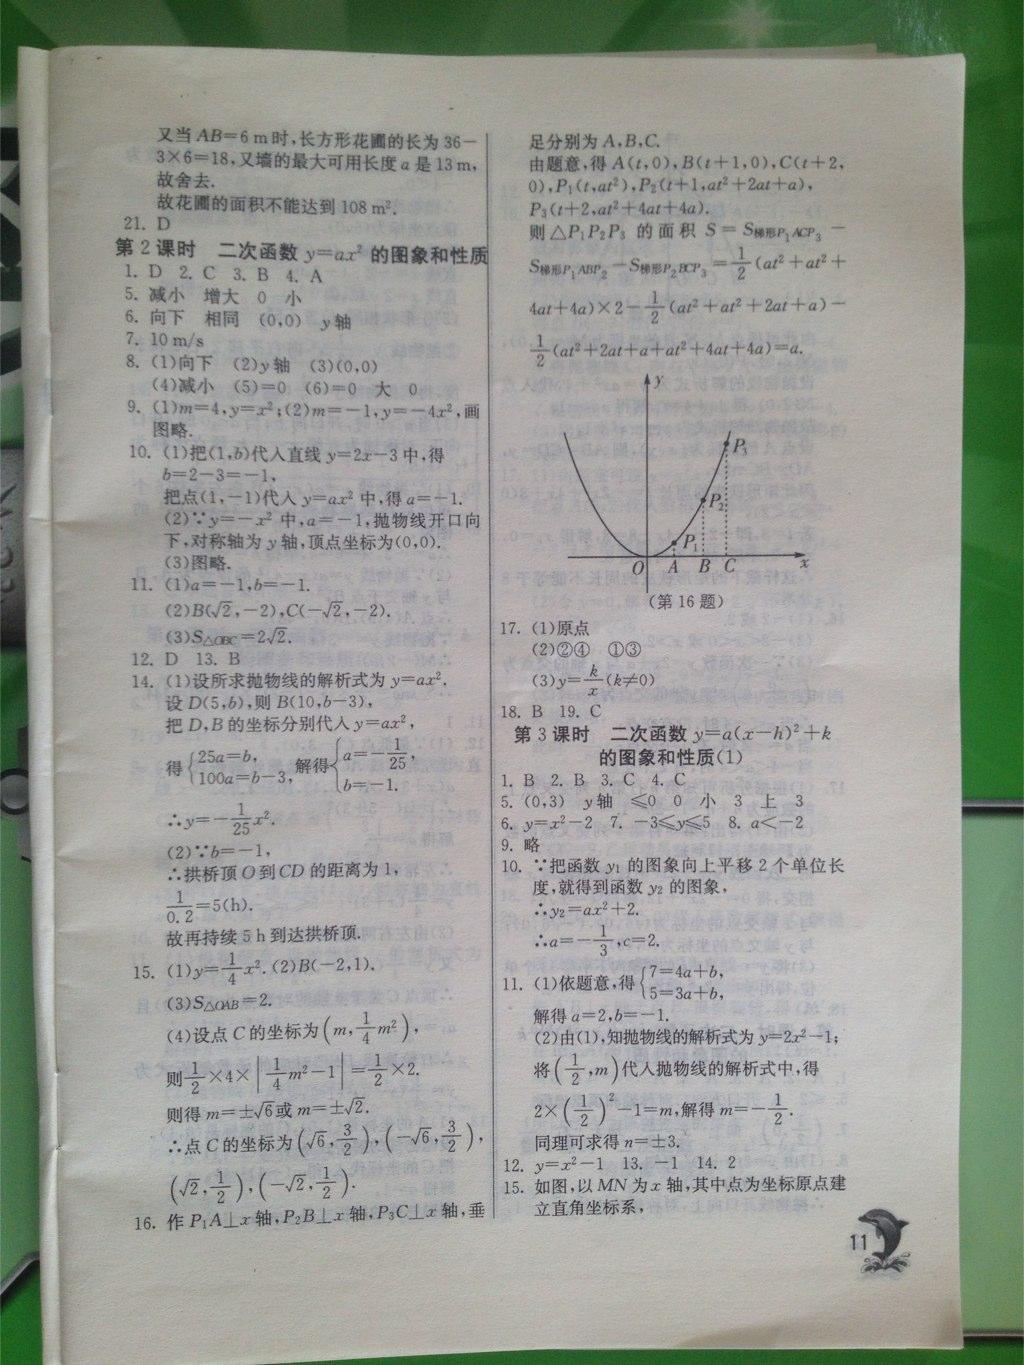 又当 AB=6 m 时,长方形花圃的长为 36-
3×6=18,又墙的最大可用长度 a 是 13 m,
故舍去.
故花圃的面积不能达到 108 m².
21. D
第 2 课时 二次函数 y=ax² 的图象和性质
1. D 2. C 3. B 4. A
5. 减小 增大 0 小
6. 向下 相同 (0,0) y 轴
7. 10 m/s
8. (1)向下 (2)y 轴 (3)(0,0)
(4)减小 (5)=0 (6)=0 大 0
9. (1)m=4,y=x²;(2)m=-1,y=-4x²,画
图略.
10. (1)把(1,b)代入直线 y=2x-3 中,得
b=2-3=-1,
把点(1,-1)代入 y=ax² 中,得 a=-1.
(2)∵y=-x² 中,a=-1,抛物线开口向
下,对称轴为 y 轴,顶点坐标为(0,0).
(3)图略.
11. (1)a=-1,b=-1.
(2)B(√2,-2),C(-√2,-2).
(3)S△OBC=2√2.
12. D 13. B
14. (1)设所求抛物线的解析式为 y=ax².
设 D(5,b),则 B(10,b-3),
把 D,B 的坐标分别代入 y=ax²,
得{25a=b, 100a=b-3, 解得{a=-1/25, b=-1.
∴y=-1/25x².
(2)∵b=-1,
∴拱桥顶 O 到 CD 的距离为 1,
1/0.2=5(h).
故再持续 5 h 到达拱桥顶.
15. (1)y=1/4x². (2)B(-2,1).
(3)S△OAB=2.
(4)设点 C 的坐标为(m,1/4m²),
则1/2×4×|1/4m²-1|=1/2×2.
则得 m=±√6或 m=±√2.
∴点 C 的坐标为(√6,3/2),(-√6,3/2),
(√2,1/2),(-√2,1/2).
16. 作 P₁A⊥x 轴,P₂B⊥x 轴,P₃C⊥x 轴,垂
足分别为 A,B,C.
由题意,得 A(t,0),B(t+1,0),C(t+2,
0),P₁(t,at²),P₂(t+1,at²+2at+a),
P₃(t+2,at²+4at+4a).
则 △P₁P₂P₃ 的面积 S=S梯形P₁ACP₃-
S梯形P₁ABP₂-S梯形P₂BCP₃=1/2(at²+at²+
4at+4a)×2-1/2(at²+at²+2at+a)-
1/2(at²+2at+a+at²+4at+4a)=a.
y
P₃
P₂
P₁
O A B C x
(第 16 题)
17. (1)原点
(2)②④ ①③
(3)y=k/x(k≠0)
18. B 19. C
第 3 课时 二次函数 y=a(x-h)²+k
的图象和性质(1)
1. B 2. B 3. C 4. C
5. (0,3) y 轴 ≤0 0 小 3 上 3
6. y=x²-2 7. -3≤y≤5 8. a<-2
9. 略
10. ∵把函数 y₁ 的图象向上平移 2 个单位长
度,就得到函数 y₂ 的图象,
∴y₂=ax²+2.
∴a=-1/3,c=2.
11. (1)依题意,得{7=4a+b, 5=3a+b,
解得 a=2,b=-1.
(2)由(1),知抛物线的解析式为 y=2x²-1;
将(1/2,m)代入抛物线的解析式中,得
2×(1/2)²-1=m,解得 m=-1/2.
同理可求得 n=±3.
12. y=x²-1 13. -1 14. 2
15. 如图,以 MN 为 x 轴,其中点为坐标原点建
立直角坐标系,
11